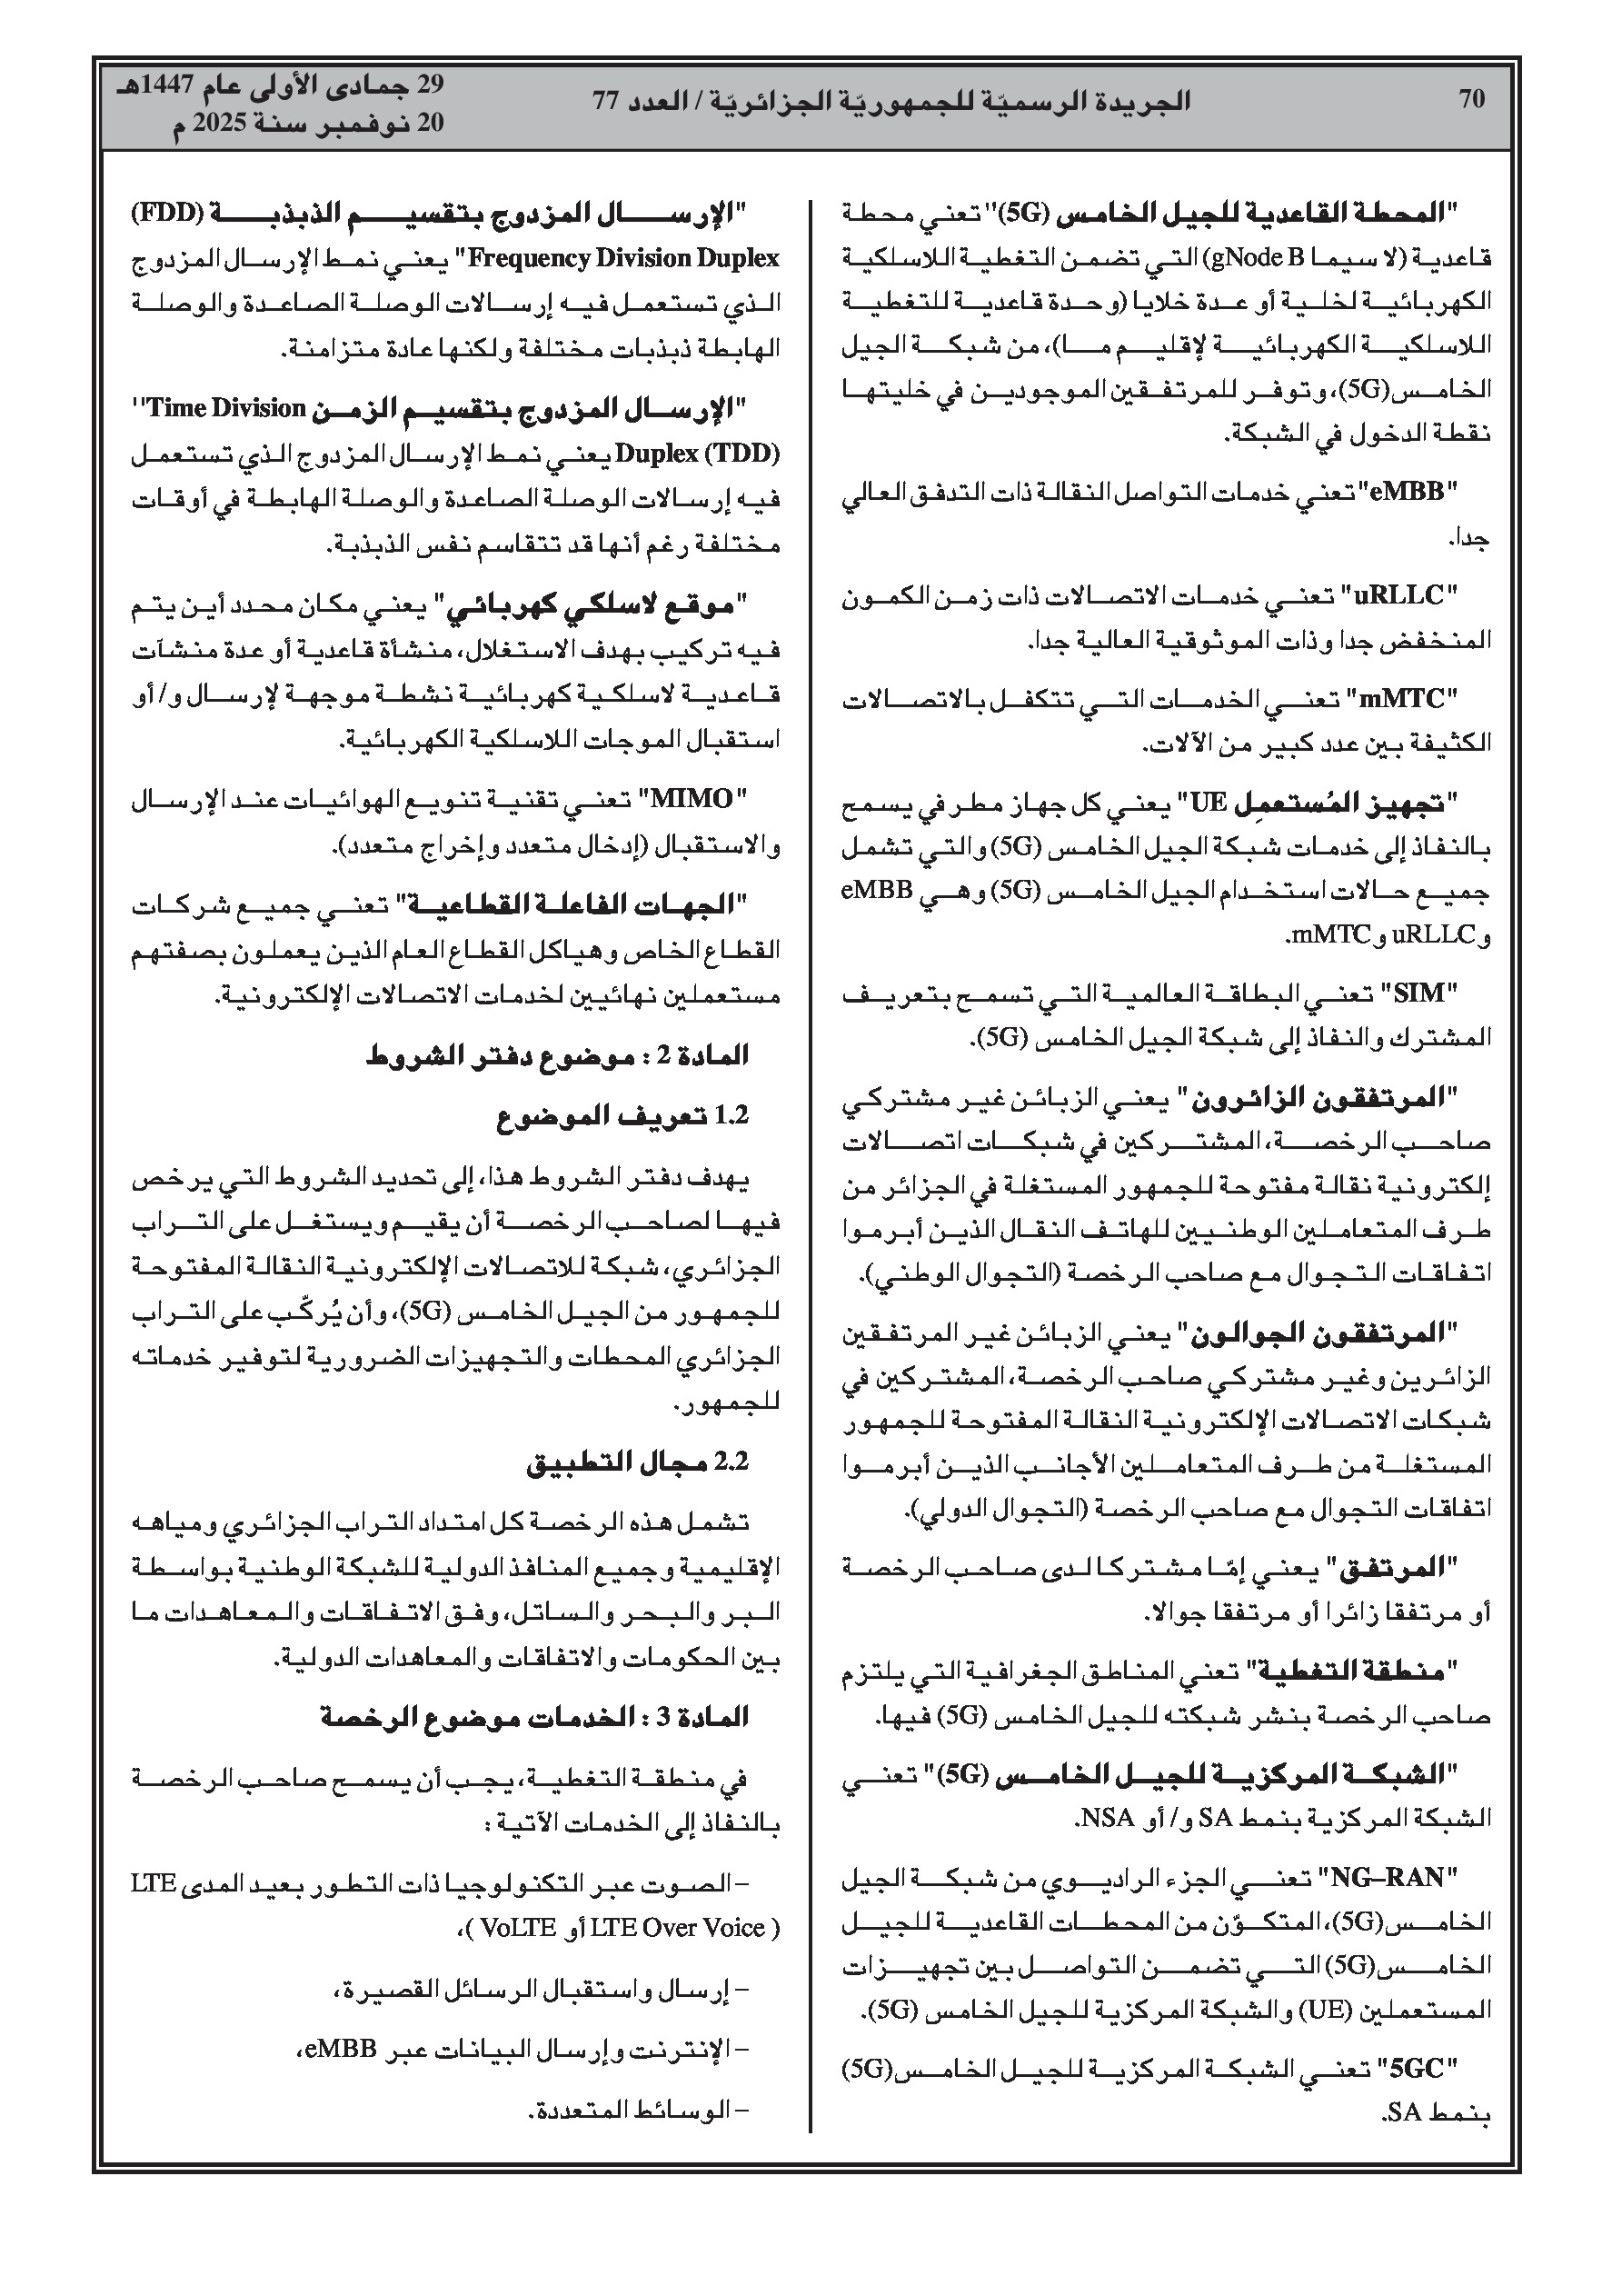 70
الجريدة الرسميّة للجمهوريّة الجزائريّة / العدد 77
29 جمادى الأولى عام 1447هـ
20 نوفمبر سنة 2025 م
"المحطة القاعدية للجيل الخامس (5G)" تعني محطة
قاعدية (لا سيما gNode B) التي تضمن التغطية اللاسلكية
الكهربائية لخلية أو عدة خلايا (وحدة قاعدية للتغطية
اللاسلكية الكهربائية لإقليم ما)، من شبكة الجيل
الخامس(5G)، وتوفر للمرتفقين الموجودين في خليتها
نقطة الدخول في الشبكة.
"eMBB" تعني خدمات التواصل النقالة ذات التدفق العالي
جدا.
"uRLLC" تعني خدمات الاتصالات ذات زمن الكمون
المنخفض جدا وذات الموثوقية العالية جدا.
"mMTC" تعني الخدمات التي تتكفل بالاتصالات
الكثيفة بين عدد كبير من الآلات.
"تجهيز المُستعمِل UE" يعني كل جهاز مطرفي يسمح
بالنفاذ إلى خدمات شبكة الجيل الخامس (5G) والتي تشمل
جميع حالات استخدام الجيل الخامس (5G) وهي eMBB
وuRLLC وmMTC.
"SIM" تعني البطاقة العالمية التي تسمح بتعريف
المشترك والنفاذ إلى شبكة الجيل الخامس (5G).
"المرتفقون الزائرون" يعني الزبائن غير مشتركي
صاحب الرخصة، المشتركين في شبكات اتصالات
إلكترونية نقالة مفتوحة للجمهور المستغلة في الجزائر من
طرف المتعاملين الوطنيين للهاتف النقال الذين أبرموا
اتفاقات التجوال مع صاحب الرخصة (التجوال الوطني).
"المرتفقون الجوالون" يعني الزبائن غير المرتفقين
الزائرين وغير مشتركي صاحب الرخصة، المشتركين في
شبكات الاتصالات الإلكترونية النقالة المفتوحة للجمهور
المستغلة من طرف المتعاملين الأجانب الذين أبرموا
اتفاقات التجوال مع صاحب الرخصة (التجوال الدولي).
"المرتفق" يعني إمّا مشتركا لدى صاحب الرخصة
أو مرتفقا زائرا أو مرتفقا جوالا.
"منطقة التغطية" تعني المناطق الجغرافية التي يلتزم
صاحب الرخصة بنشر شبكته للجيل الخامس (5G) فيها.
"الشبكة المركزية للجيل الخامس (5G)" تعني
الشبكة المركزية بنمط SA و/ أو NSA.
"NG–RAN" تعني الجزء الراديوي من شبكة الجيل
الخامس(5G)، المتكوّن من المحطات القاعدية للجيل
الخامس(5G) التي تضمن التواصل بين تجهيزات
المستعملين (UE) والشبكة المركزية للجيل الخامس (5G).
"5GC" تعني الشبكة المركزية للجيل الخامس(5G)
بنمط SA.
"الإرسال المزدوج بتقسيم الذبذبة (FDD)
Frequency Division Duplex" يعني نمط الإرسال المزدوج
الذي تستعمل فيه إرسالات الوصلة الصاعدة والوصلة
الهابطة ذبذبات مختلفة ولكنها عادة متزامنة.
"الإرسال المزدوج بتقسيم الزمن Time Division"
Duplex (TDD) يعني نمط الإرسال المزدوج الذي تستعمل
فيه إرسالات الوصلة الصاعدة والوصلة الهابطة في أوقات
مختلفة رغم أنها قد تتقاسم نفس الذبذبة.
"موقع لاسلكي كهربائي" يعني مكان محدد أين يتم
فيه تركيب بهدف الاستغلال، منشأة قاعدية أو عدة منشآت
قاعدية لاسلكية كهربائية نشطة موجهة لإرسال و/ أو
استقبال الموجات اللاسلكية الكهربائية.
"MIMO" تعني تقنية تنويع الهوائيات عند الإرسال
والاستقبال (إدخال متعدد وإخراج متعدد).
"الجهات الفاعلة القطاعية" تعني جميع شركات
القطاع الخاص وهياكل القطاع العام الذين يعملون بصفتهم
مستعملين نهائيين لخدمات الاتصالات الإلكترونية.
المادة 2 : موضوع دفتر الشروط
1.2 تعريف الموضوع
يهدف دفتر الشروط هذا، إلى تحديد الشروط التي يرخص
فيها لصاحب الرخصة أن يقيم ويستغل على التراب
الجزائري، شبكة للاتصالات الإلكترونية النقالة المفتوحة
للجمهور من الجيل الخامس (5G)، وأن يُركّب على التراب
الجزائري المحطات والتجهيزات الضرورية لتوفير خدماته
للجمهور.
2.2 مجال التطبيق
تشمل هذه الرخصة كل امتداد التراب الجزائري ومياهه
الإقليمية وجميع المنافذ الدولية للشبكة الوطنية بواسطة
البر والبحر والساتل، وفق الاتفاقات والمعاهدات ما
بين الحكومات والاتفاقات والمعاهدات الدولية.
المادة 3 : الخدمات موضوع الرخصة
في منطقة التغطية، يجب أن يسمح صاحب الرخصة
بالنفاذ إلى الخدمات الآتية :
– الصوت عبر التكنولوجيا ذات التطور بعيد المدى LTE
( LTE Over Voice أو VoLTE )،
– إرسال واستقبال الرسائل القصيرة،
– الإنترنت وإرسال البيانات عبر eMBB،
– الوسائط المتعددة.